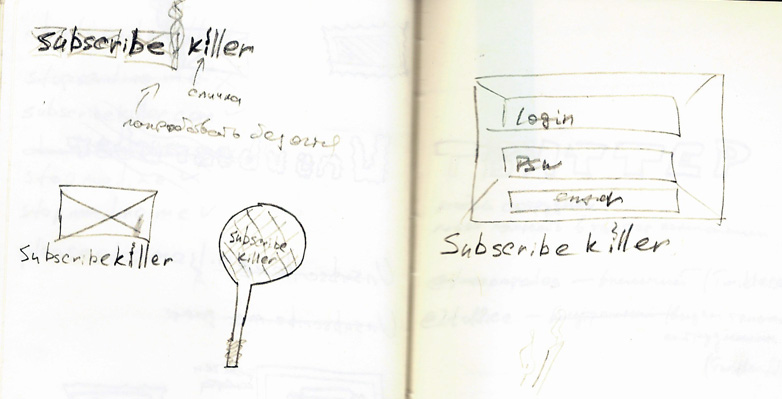 Subscribe killer
спичка
попробовать без огня
Subscribekiller
subscribe
killer
Login
PSW
Subscribe killer